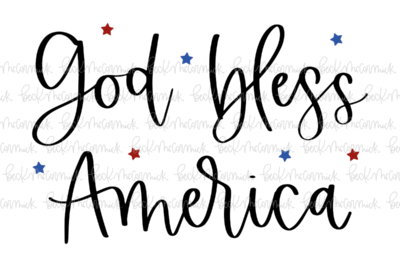 God bless
America